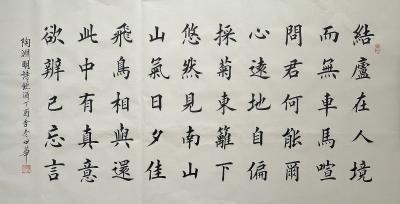 結廬在人境
而無車馬喧
問君何能爾
心遠地自偏
採菊東籬下
悠然見南山
山氣日夕佳
飛鳥相與還
此中有真意
欲辨已忘言
陶淵明詩飲酒丁酉